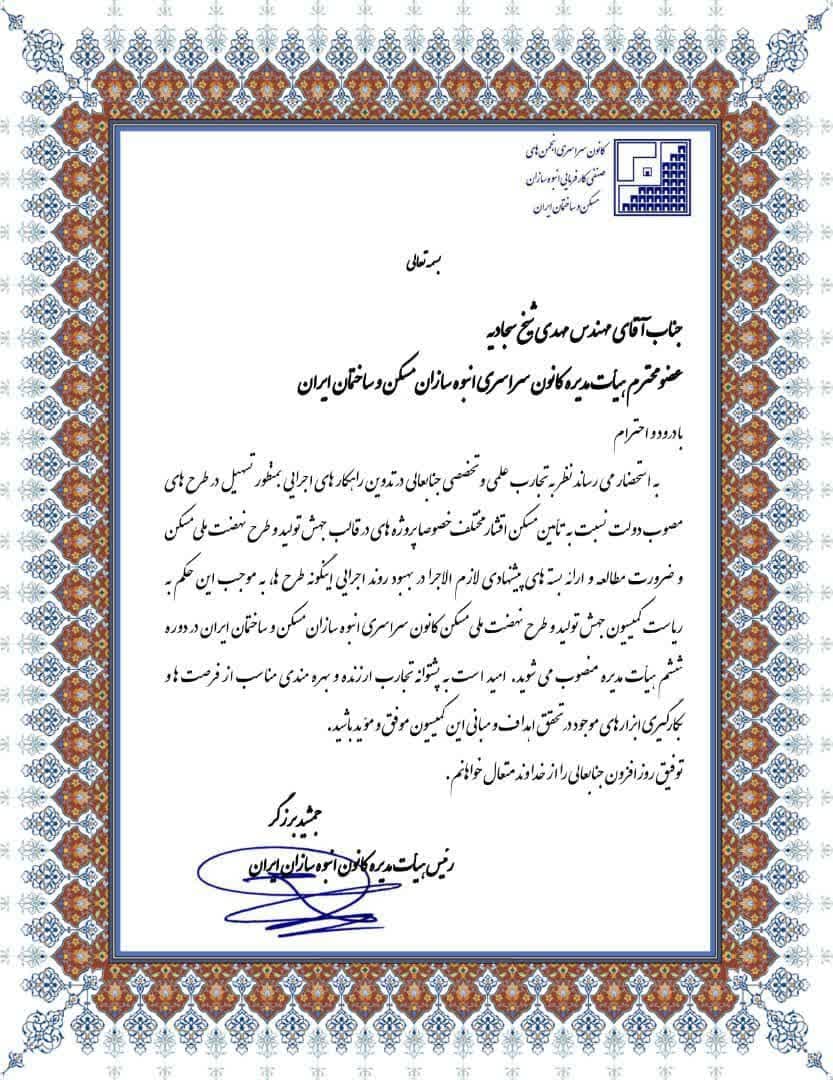 کانون سراسری انجمن های
صنفی کارفرمائی انبوه سازان
مسکن و ساختمان ایران
بسمه تعالی
جناب آقای مهندس مهدی شیخ سجادیه
عضو محترم هیأت مدیره کانون سراسری انبوه سازان مسکن و ساختمان ایران
با درود و احترام
به استحضار می رساند نظر به تجارب علمی و تخصصی جنابعالی در تدوین راهکار های اجرایی بمنظور تسهیل در طرح های
مصوب دولت نسبت به تامین مسکن اقشار مختلف خصوصا پروژه های در قالب جهش تولید و طرح نهضت ملی مسکن
و ضرورت مطالعه و ارائه بسته های پیشنهادی لازم الاجرا در بهبود روند اجرایی اینگونه طرح ها، به موجب این حکم به
ریاست کمیسیون جهش تولید و طرح نهضت ملی مسکن کانون سراسری انبوه سازان مسکن و ساختمان ایران در دوره
ششم هیأت مدیره منصوب می شوید. امید است به پشتوانه تجارب ارزنده و بهره مندی مناسب از فرصت ها و
بکارگیری ابزارهای موجود در تحقق اهداف و مبانی این کمیسیون موفق و مؤید باشید.
توفیق روز افزون جنابعالی را از خداوند متعال خواهانم.
جمشید برزگر
رئیس هیأت مدیره کانون انبوه سازان ایران